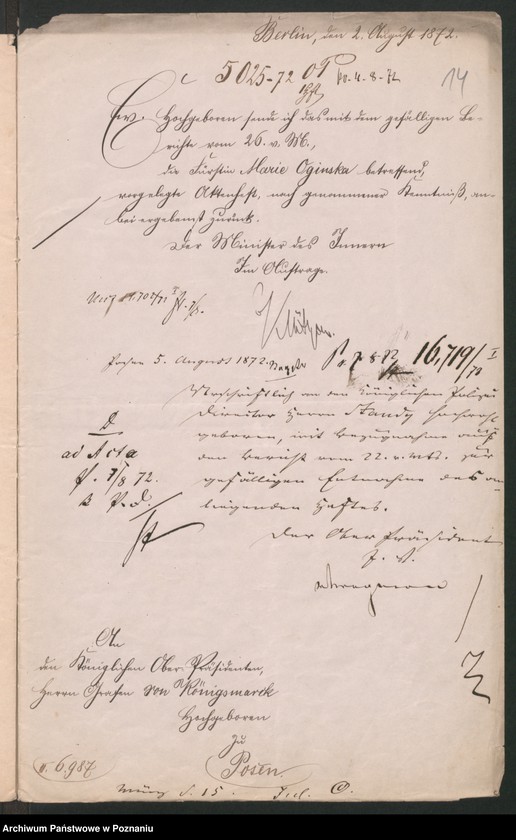 Berlin, den 2. August 1872.
5025-72 OP pr. 4-8-72
14
Ew. Hochgeboren sende ich das mit dem gefälligen Be-
richte vom 26. v. M.,
die Fürstin Marie Oginska betreffend,
vorgelegte Aktenheft, nach genommener Kenntniß, an-
bei ergebenst zurück.
Der Minister des Innern
Im Auftrage
Posen 5. August 1872.
16,719/72 I
Urschriftlich an den Königlichen Polizei
Director Herrn Staudy Hochwohl
geboren, mit Bezugnahme auf
den Bericht vom 22. v. Mts. zur
gefälligen Entnahme des an-
liegenden Heftes.
Der Ober Präsident
ad Acta
p. 7/8 72.
K. P. d.
An
den Königlichen Ober-Präsidenten,
Herrn Grafen von Königsmarck
Hochgeboren
zu
Posen.
6987
Archiwum Państwowe w Poznaniu